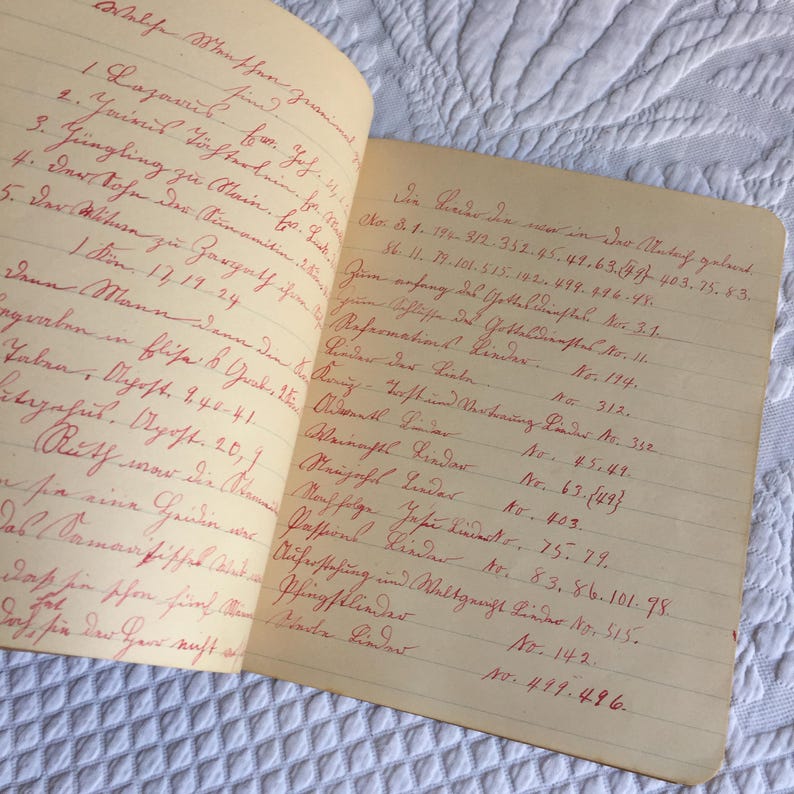 Welche Menschen zweimal
sind.
1 Lazarus Ev. Joh. 11,
2. Jairus Töchterlein. Ev.
3. Jüngling zu Nain. Ev. Luk.
4. Der Sohn der Sunamitin. 2
5. Der Witwe zu Zarpath ihren
1 Kön. 17,19-24
denn Mann denn die
begraben in Elisa's Grab. 2
Tabea. Apost. 9.40-41.
Apost. 20,9
Ruth war die
sie eine Heidin war
das Samaritische Weib
daß sie schon fünf Männ
hat
doch sie der Herr nicht
Die Lieder die war in der Unterich gelernt.
No. 3.1. 194-312.352.45.49.63.{49} 403.75.83.
86.11.79.101.515.142.499.496.98.
Zum anfang des Gottesdienstes. No. 3.1.
zum Schlusse des Gottesdienstes No. 11.
Reformations Lieder. No. 194.
Lieder der Liebe. No. 312.
Kreuz-Trost und Vertrauung Lieder No. 352
Advents Lieder No. 45.49.
Weinachts Lieder No. 63.{49}
Neujahrs Lieder No. 403.
Nachfolge Jesu Lieder No. 75.79.
Passions Lieder No. 83.86.101.98
Auferstehung und Weltgericht Lieder No. 515.
Pfingstlieder No. 142.
Sterbe Lieder No. 499.496.